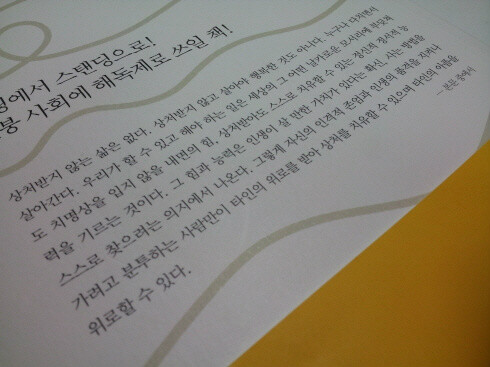 에서 스탠딩으로!
봉 사회에 해독제로 쓰일 책!
상처받지 않는 삶은 없다. 상처받지 않고 살아야 행복한 것도 아니다. 누구나 다치면서
살아간다. 우리가 할 수 있고 해야 하는 일은 세상의 그 어떤 날카로운 모서리에 부딪쳐
도 치명상을 입지 않을 내면의 힘, 상처받아도 스스로 치유할 수 있는 정신적 정서적 능
력을 기르는 것이다. 그 힘과 능력은 인생이 살 만한 가치가 있다는 확신, 사는 방법을
스스로 찾으려는 의지에서 나온다. 그렇게 자신의 인격적 존엄과 인생의 품격을 지켜나
가려고 분투하는 사람만이 타인의 위로를 받아 상처를 치유할 수 있으며 타인의 아픔을
위로할 수 있다.
—본문 중에서